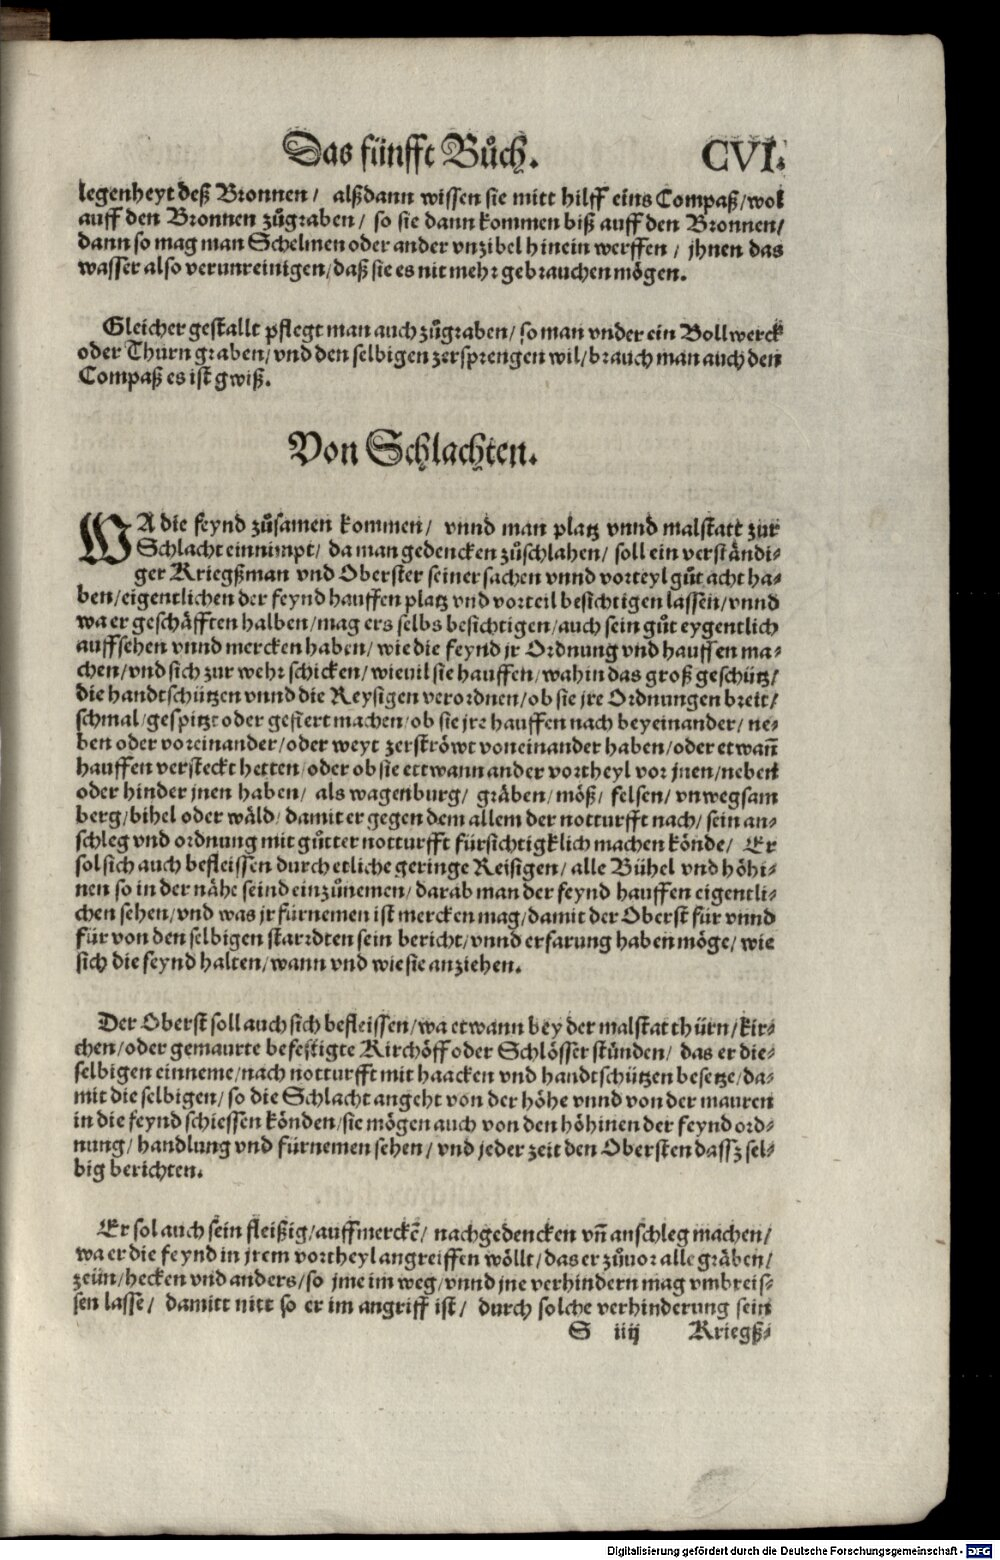 Das fünfft Bůch. CVI.
legenheyt deß Bronnen/ alßdann wissen sie mitt hilff eins Compaß/wol
auff den Bronnen zůgraben/ so sie dann kommen biß auff den Bronnen/
dann so mag man Schelmen oder ander vnzibel hinein werffen/ jhnen das
wasser also verunreinigen/daß sie es nit mehr gebrauchen mögen.
Gleicher gestallt pflegt man auch zůgraben/so man vnder ein Bollwerck
oder Thurn graben/vnd den selbigen zersprengen wil/brauch man auch den
Compaß es ist gwiß.
Von Schlachten.
WA die feynd zůsamen kommen/ vnnd man platz vnnd malstatt zur
Schlacht einnimpt/ da man gedencken zůschlahen/ soll ein verständi⸗
ger Kriegßman vnd Oberster seiner sachen vnnd vorteyl gůt acht ha⸗
ben/eigentlichen der feynd hauffen platz vnd vorteil besichtigen lassen/vnnd
wa er geschäfften halben/mag ers selbs besichtigen/auch sein gůt eygentlich
auffsehen vnnd mercken haben/wie die feynd jr Ordnung vnd hauffen ma⸗
chen/vnd sich zur wehr schicken/wieuil sie hauffen/wahin das groß geschütz/
die handtschützen vnnd die Reysigen verordnen/ob sie jre Ordnungen breit/
schmal/gespitzt oder gefiert machen/ob sie jre hauffen nach beyeinander/ne⸗
ben oder voreinander/oder weyt zerströwt voneinander haben/oder etwañ
hauffen versteckt hetten/oder ob sie ettwann ander vortheyl vor jnen/neben
oder hinder jnen haben/ als wagenburg/ gräben/möß/ felsen/vnwegsam
berg/bihel oder wäld/damit er gegen dem allem der notturfft nach/ sein an⸗
schleg vnd ordnung mit gůtter notturfft fürsichtigklich machen könde/ Er
sol sich auch befleissen durch etliche geringe Reisigen/alle Bühel vnd höhi⸗
nen so in der nähe seind einzůnemen/darab man der feynd hauffen eigentli⸗
chen sehen/vnd was jr fürnemen ist mercken mag/damit der Oberst für vnnd
für von den selbigen starrdten sein bericht/vnnd erfarung haben möge/ wie
sich die feynd halten/wann vnd wie sie anziehen.
Der Oberst soll auch sich befleissen/wa etwann bey der malstat thürn/kir⸗
chen/oder gemaurte befestigte Kirchöff oder Schlösser stünden/ das er die⸗
selbigen einneme/nach notturfft mit haacken vnd handtschützen besetze/da⸗
mit die selbigen/so die Schlacht angeht von der höhe vnnd von der mauren
in die feynd schiessen könden/sie mögen auch von den höhinen der feynd ord⸗
nung/handlung vnd fürnemen sehen/vnd jeder zeit den Obersten dassz sel⸗
big berichten.
Er sol auch sein fleißig/auffmerckē/ nachgedencken vñ anschleg machen/
wa er die feynd in jrem vortheyl angreiffen wöllt/das er zůuor alle gräben/
zeün/hecken vnd anders/so jme im weg/vnnd jne verhindern mag vmbreis⸗
sen lasse/ damitt nitt so er im angriff ist/ durch solche verhinderung sein
S iiij Kriegß⸗
Digitalisierung gefördert durch die Deutsche Forschungsgemeinschaft - DFG